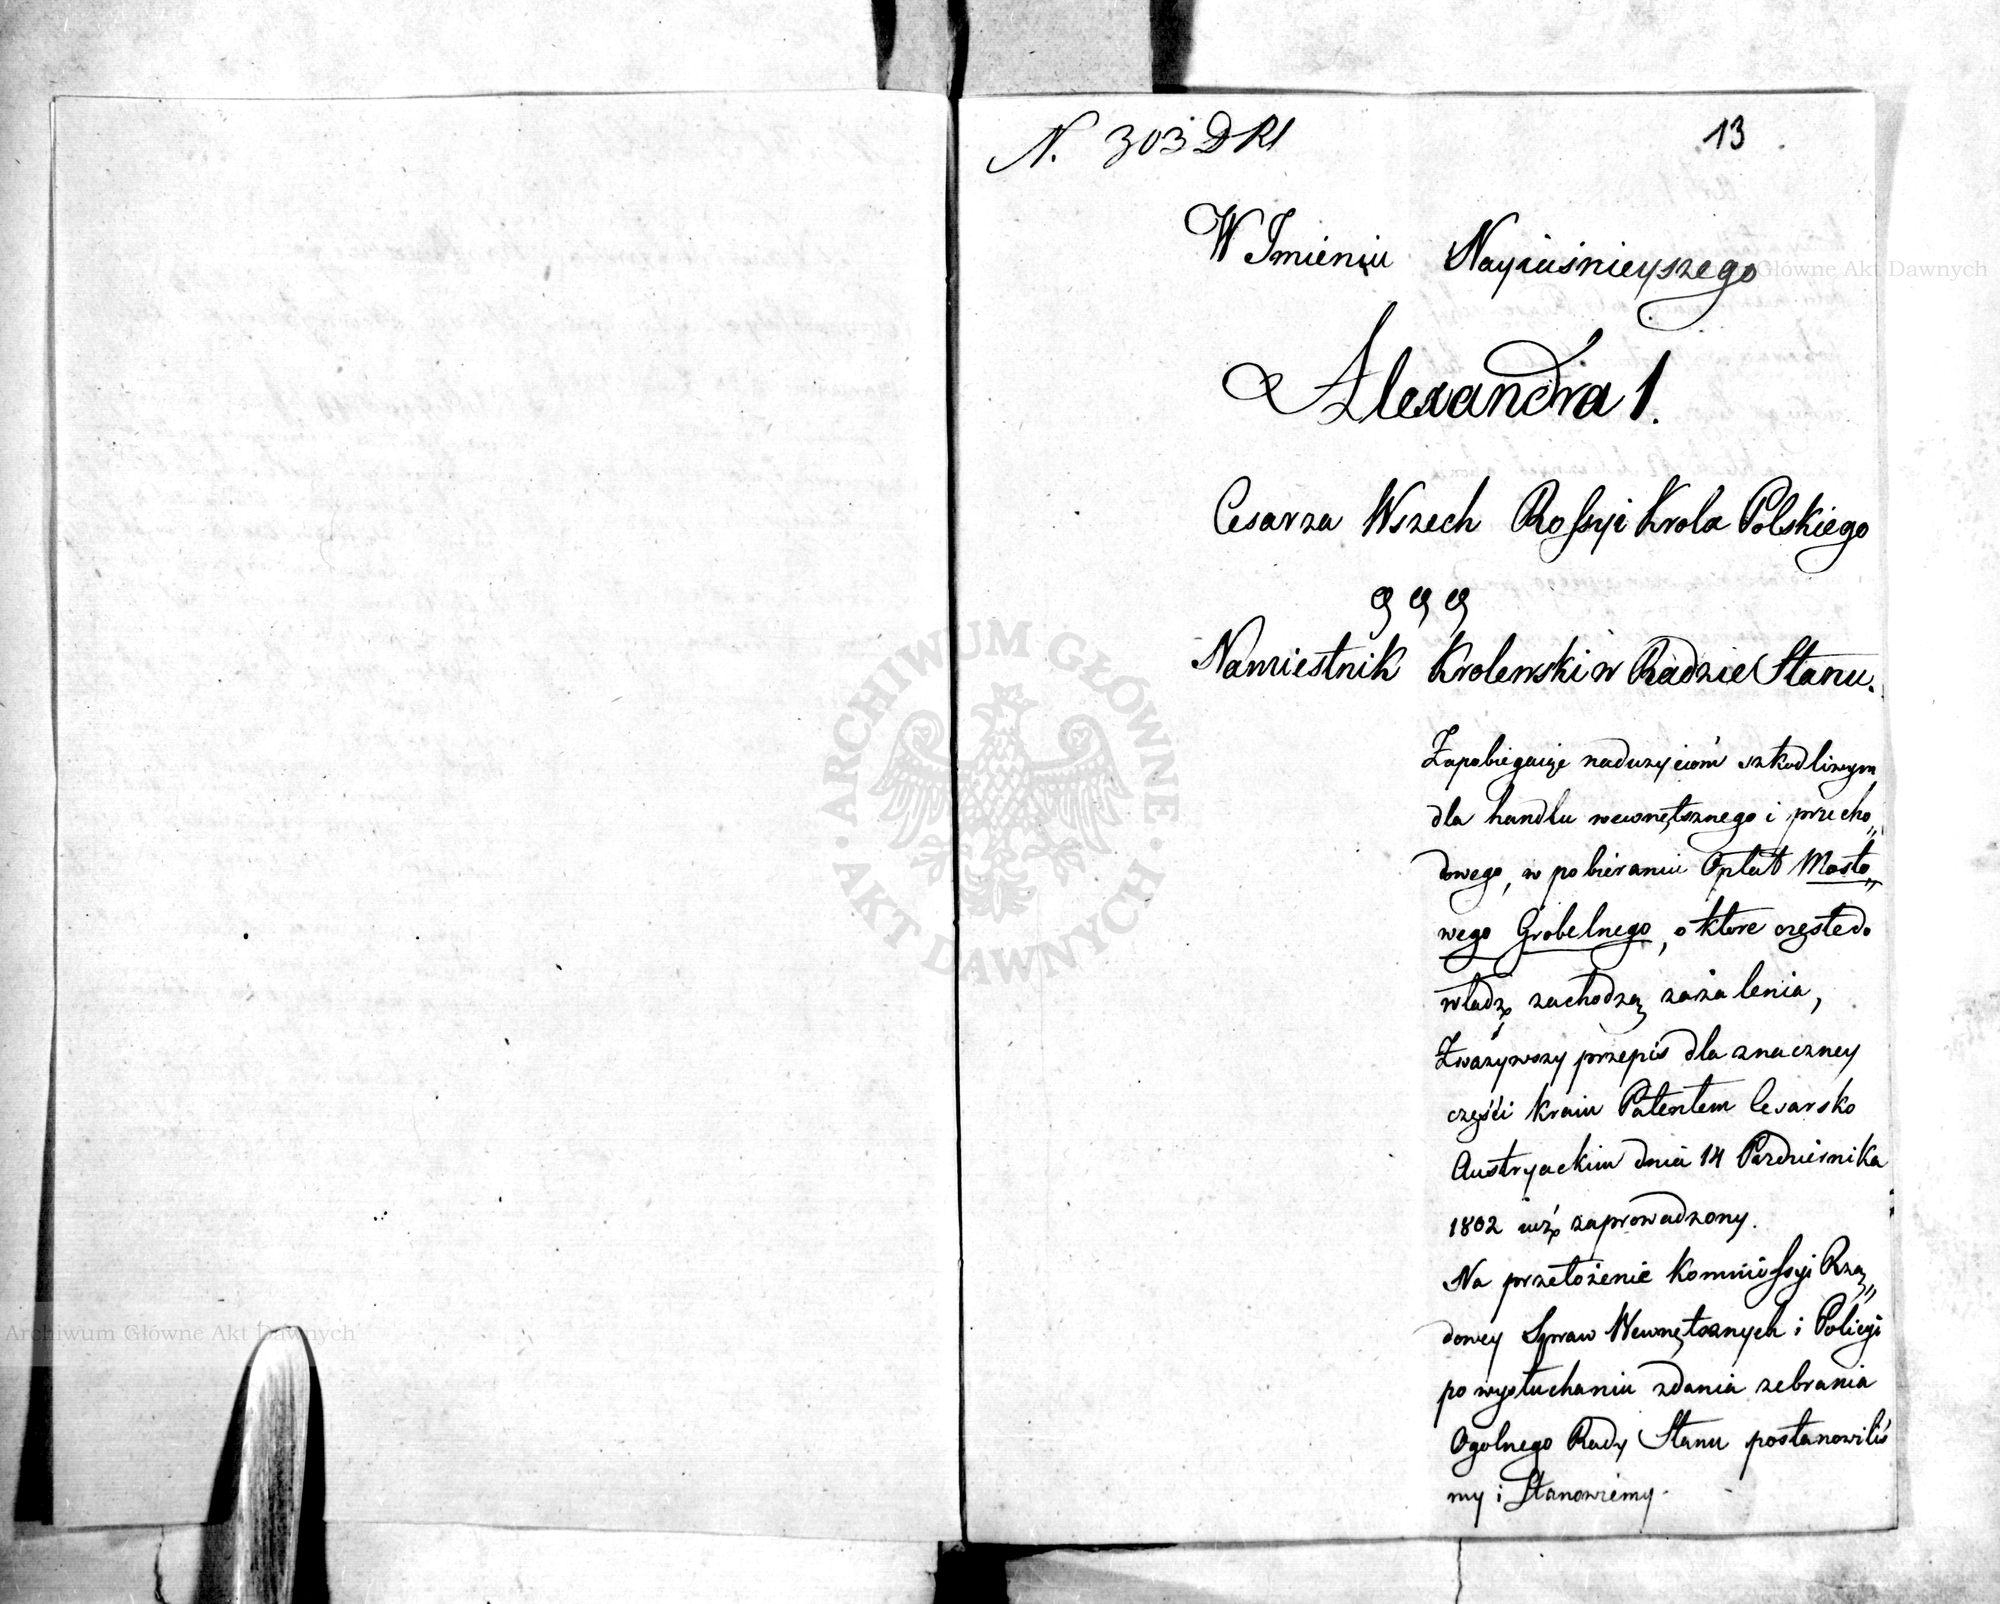 N. 303 DRS
13
W Imieniu Nayiaśnieyszego
Alexandra 1.
Cesarza Wszech Rossyi Krola Polskiego
Namiestnik Krolewski w Radzie Stanu.
Zapobiegaiąc nadużyciom szkodliwym
dla handlu wewnętrznego i przecho„
dowego, w pobieraniu Opłat Mosto„
wego Grobelnego, o które częste do
władz zachodzą zażalenia,
Zważywszy przepis dla znaczney
części kraiu Patentem Cesarsko
Austryackim dnia 14 Pazdziernika
1802 iuż zaprowadzony.
Na przełożenie Kommissyi Rzą„
dowey Spraw Wewnętrznych i Policyi
po wysłuchaniu zdania zebrania
Ogolnego Rady Stanu postanowiliś
my i Stanowiemy.
ARCHIWUM GŁÓWNE · AKT DAWNYCH ·
Główne Akt Dawnych
Archiwum Główne Akt Dawnych